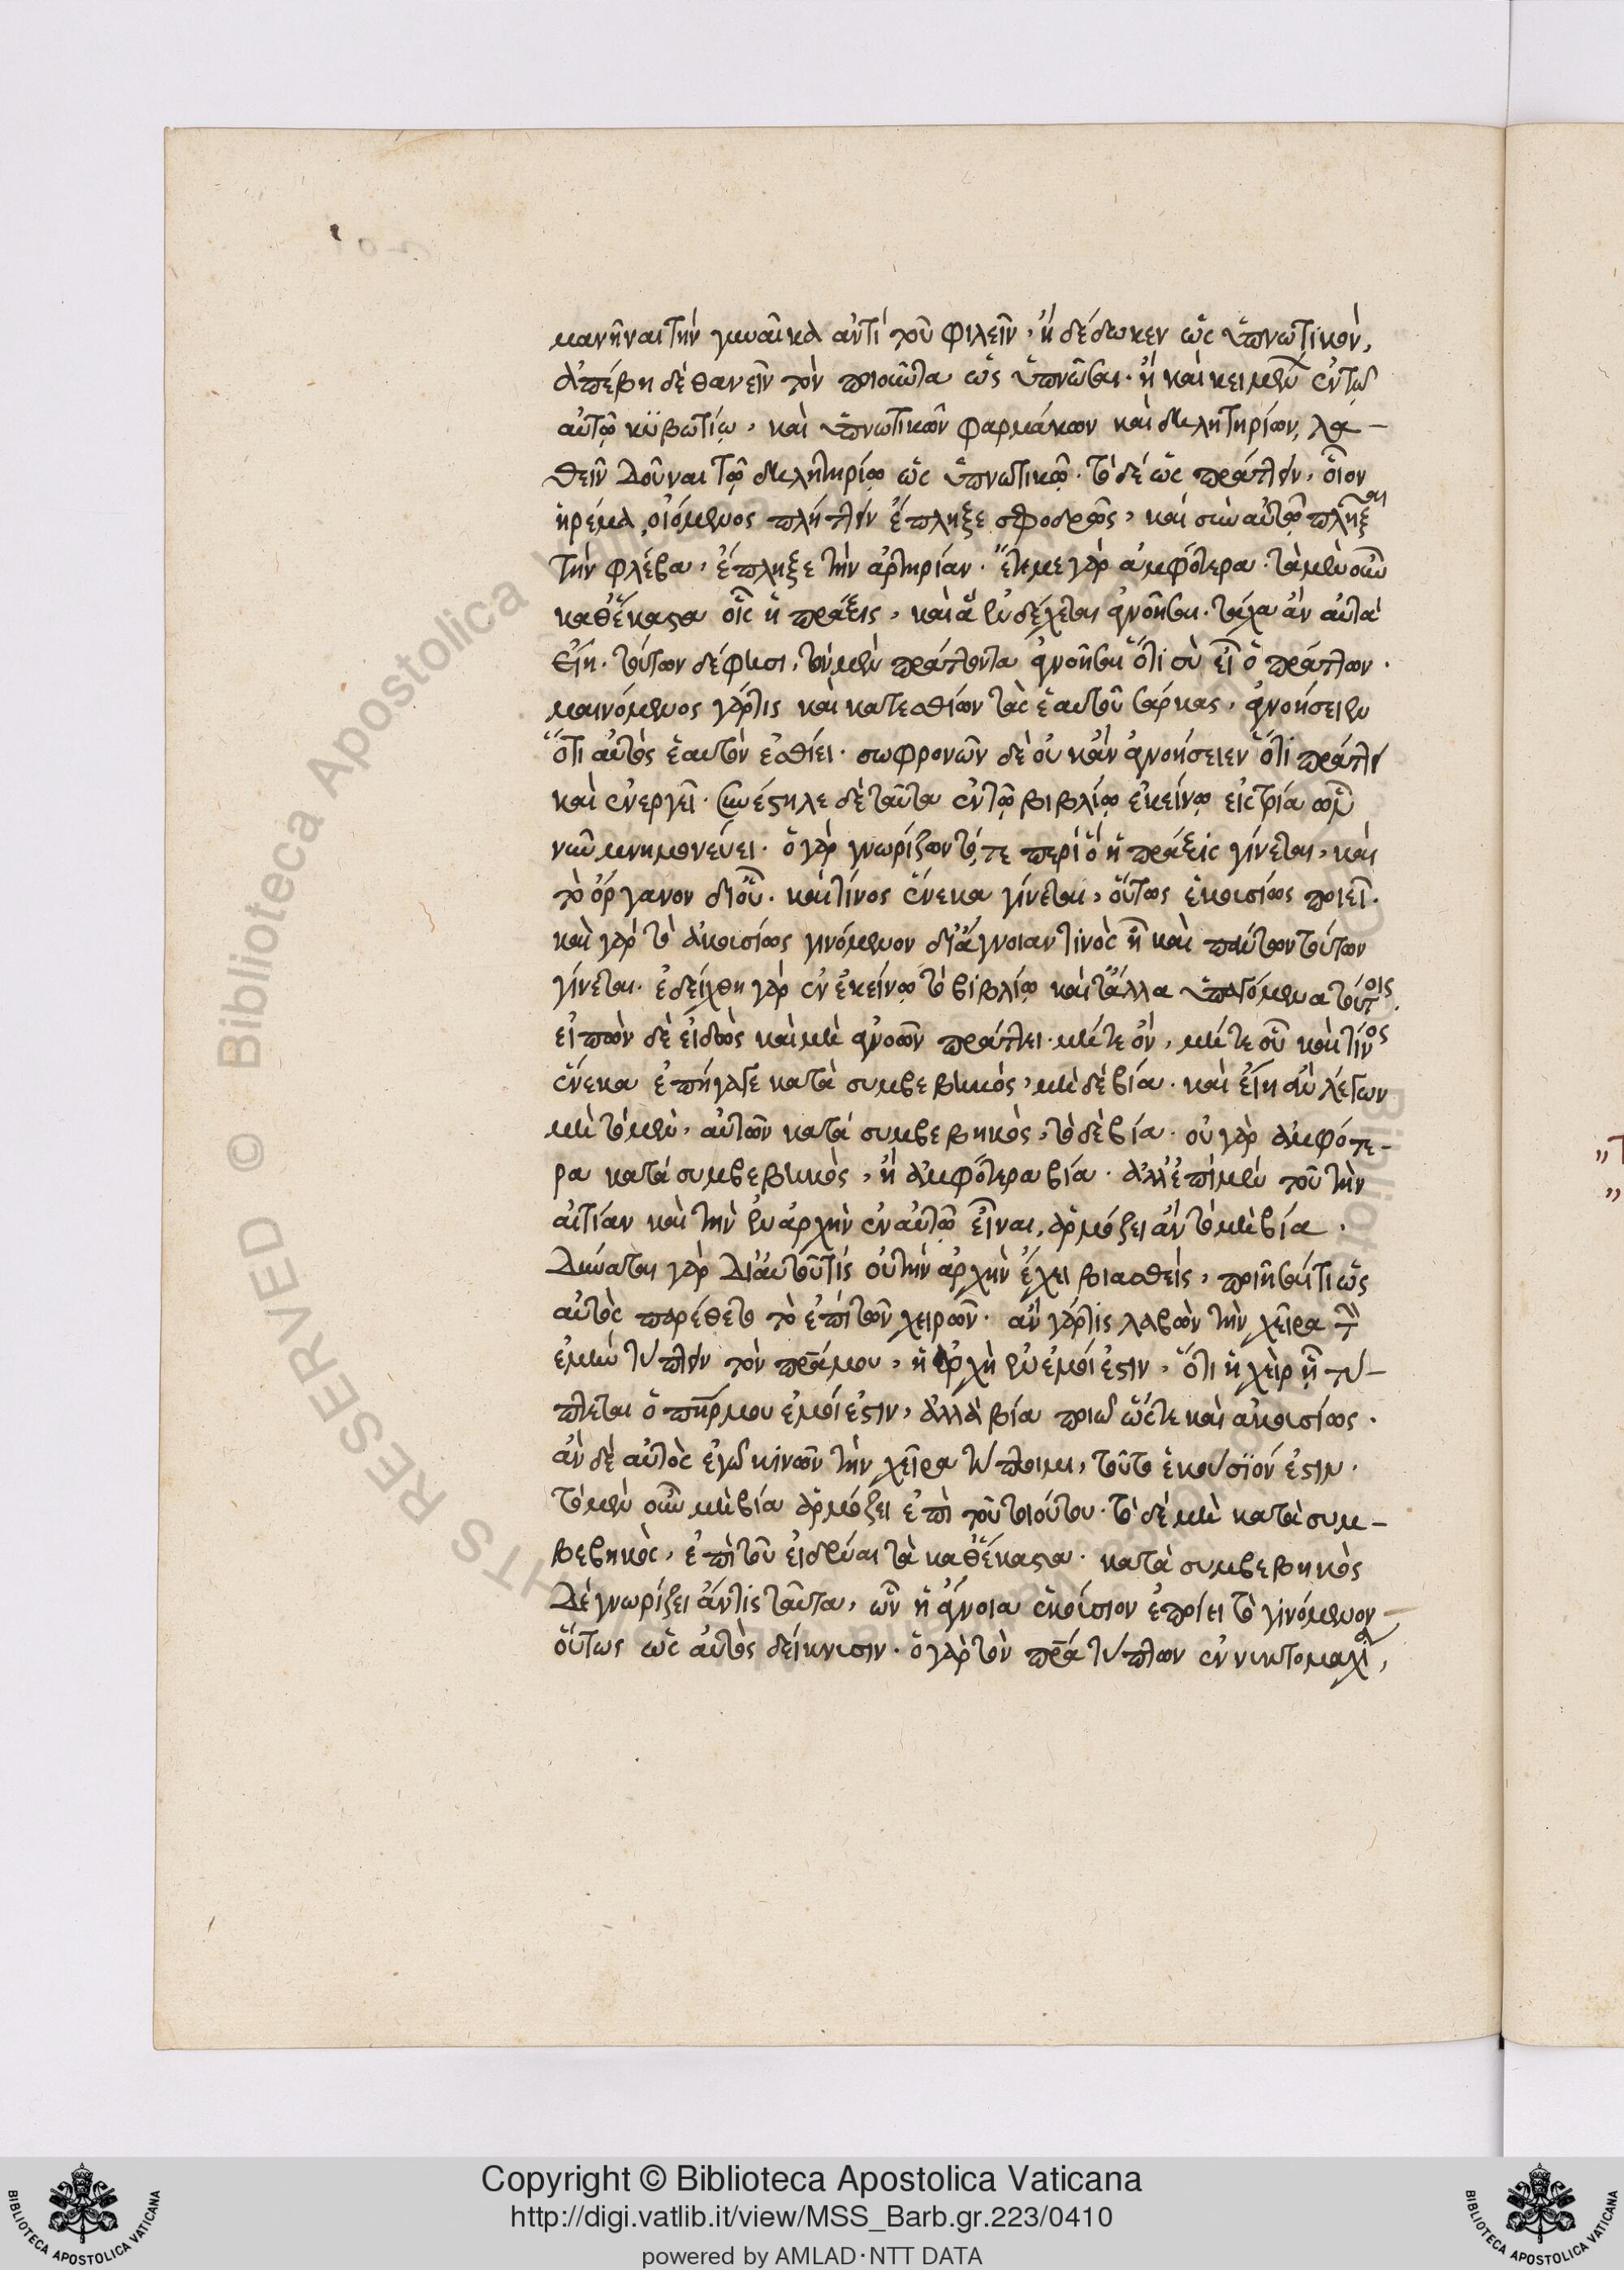 μανῆναι τὴν γυναῖκα ἀντὶ τοῦ φιλεῖν, ἢ δέδωκεν ὡς ὑπνωτικὸν,
ἀπέβη δὲ θανεῖν τὸν πιοῦντα ὡς ὑπνῶσαι. ἢ καὶ κειμένου ἐν τῷ
αὐτῷ κϊβωτίῳ, καὶ ὑπνωτικῶν φαρμάκων καὶ δηλητηρίων, λα-
θεῖν δοῦναι τῷ δηλητηρίῳ ὡς ὑπνωτικῷ. τὸ δὲ ὡς πράττειν, οἷον
ἠρέμα, οἰόμενος πλήττειν ἔπληξε σφοδρῶς, καὶ σὺν αὐτῷ πλῆξαι
τὴν φλέβα, ἔπληξε τὴν ἀρτηρίαν. ἔτεμε γὰρ ἀμφότερα. τὰ μὲν οὖν
καθέκαστα οἷς ἡ πρᾶξις, καὶ ἃ ἐνδέχεται ἀγνοῆσαι. τάχα ἂν αὐτὰ
εἴη. τούτων δέ φησι, τὸν μὲν πράττοντα ἀγνοῆσαι ὅτι σὺ εἶ ὁ πράττων.
μαινόμενος γάρ τις καὶ κατεσθίων τὰς ἑαυτοῦ σάρκας, ἀγνοήσειεν
ὅτι αὐτὸς ἑαυτὸν ἐσθίει. σωφρονῶν δὲ οὐκ ἂν ἀγνοήσειεν ὅτι πράττει
καὶ ἐνεργεῖ. συνέστηλε δὲ ταῦτα ἐν τῷ βιβλίῳ ἐκείνῳ εἰς τρία ὧν
νῦν μνημονεύει. ὁ γὰρ γνωρίζων τό, τε περὶ ὃ ἡ πρᾶξις γίνεται, καὶ
τὸ ὄργανον δι οὗ. καὶ τίνος ἕνεκα γίνεται, οὕτως ἑκουσίως ποιεῖ.
καὶ γὰρ τὸ ἀκουσίως γινόμενον δι ἄγνοιαν τινὸς ἢ καὶ πάντων τούτων
γίνεται. ἐδείχθη γὰρ ἐν ἐκείνῳ τῷ βιβλίῳ καὶ τἄλλα ὑπαγόμενα τούτοις.
εἰπὼν δὲ εἰδὼς καὶ μὴ ἀγνοῶν πράττει. μήτε ὃν, μήτε οὗ καὶ τίνος
ἕνεκα ἐπήγαγε κατὰ συμβεβηκὸς, μὴ δὲ βία. καὶ εἴη ἂν λέγων
μὴ τὸ μὲν, αὐτῶν κατὰ συμβεβηκὸς, τὸ δὲ βία. οὐ γὰρ ἀμφότε-
ρα κατὰ συμβεβηκὸς, ἢ ἀμφότερα βία. ἀλλ ἐπὶ μὲν τοῦ τὴν
αἰτίαν καὶ τὴν ἐναρχὴν ἐν αὐτῷ εἶναι, ἁρμόζει ἂν τὸ μὴ βία.
δύναται γὰρ δι αὑτοῦ τις οὐ τὴν ἀρχὴν ἔχει βιασθεὶς, ποιῆσαί τι ὡς
αὐτὸς παρέθετο τὸ ἐπὶ τῶν χειρῶν. ἂν γάρ τις λαβὼν τὴν χεῖρα τὴν
ἐμὴν τύπτειν τὸν πρά μου, ἡ ἀρχὴ ἐν ἐμοί ἐστιν, ὅτι ἡ χεὶρ ᾗ τύ-
πτεται ὁ πήρ μου ἐμοί ἐστιν, ἀλλὰ βία ποιῶ ὥστε καὶ ἀκουσίως.
ἂν δὲ αὐτὸς ἐγὼ κινῶν τὴν χεῖρα τύπτοιμι, τοῦτο ἑκούσϊόν ἐστιν.
τὸ μὲν οὖν μὴ βία ἁρμόζει ἐπὶ τοῦ τοιούτου. τὸ δὲ μὴ κατὰ συμ-
βεβηκὸς, ἐπὶ τοῦ εἰδέναι τὰ καθέκαστα. κατὰ συμβεβηκὸς
δὲ γνωρίζει ἄν τις ταῦτα, ὧν ἡ ἄγνοια ἀκούσιον ἐποίει τὸ γινόμενον
οὕτως ὡς αὐτὸς δείκνυσιν. ὁ γὰρ τὸν πρά τύπτων ἐν νυκτομαχίᾳ,
Copyright © Biblioteca Apostolica Vaticana
http://digi.vatlib.it/view/MSS_Barb.gr.223/0410
powered by AMLAD·NTT DATA